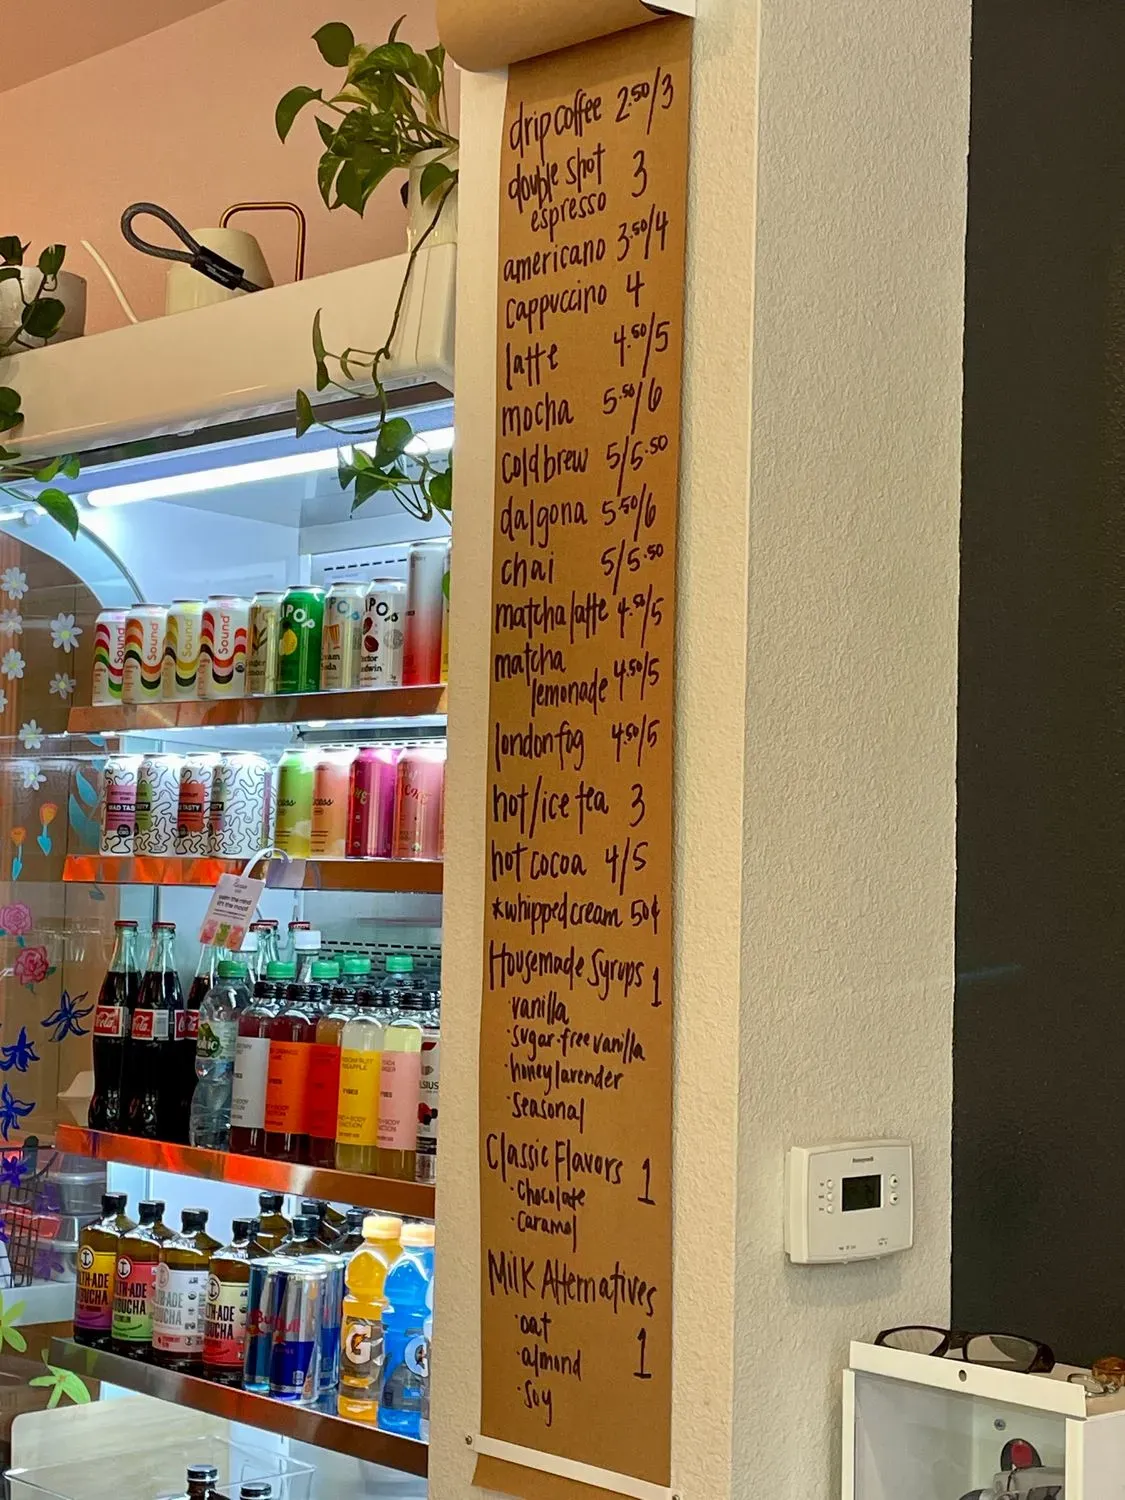 drip coffee 2.50/3
double shot
espresso 3
americano 3.50/4
cappuccino 4
latte 4.50/5
mocha 5.50/6
cold brew 5/5.50
dalgona 5.50/6
chai 5/5.50
matcha latte 4.50/5
matcha
lemonade 4.50/5
london fog 4.50/5
hot/ice tea 3
hot cocoa 4/5
*whipped cream 50¢
Housemade Syrups 1
·vanilla
·sugar-free vanilla
·honey lavender
·seasonal
Classic Flavors 1
·chocolate
·caramel
Milk Alternatives
·oat
·almond 1
·soy
Honeywell
Sound
Sound
Sound
Sound
POP
POP
POP
TASTY
Coca-Cola
Cola
VIBES
VIBES
LTH-ADE
BUCHA
LTH-ADE
BUCHA
LTH-ADE
BUCHA
LTH-ADE
BUCHA
Red Bull
G
G